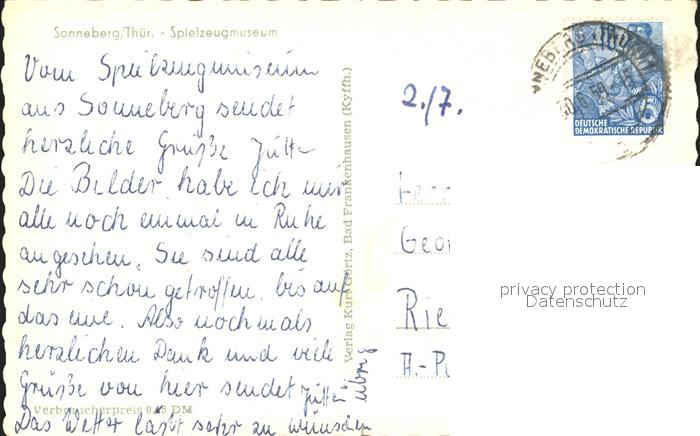 Sonneberg/Thür. - Spielzeugmuseum
Vom Spielzeugmuseum
aus Sonneberg sendet
herzliche Grüße Jutta
Die Bilder habe ich mir
alle noch einmal in Ruhe
angesehen. Sie sind alle
sehr schön getroffen, bis auf
das eine. Also nochmals
herzlichen Dank und viele
Grüße von hier sendet Jutta
Das Wetter läßt sehr zu wünschen
übrig
Verbraucherpreis DM
Verlag Kurt Görtz, Bad Frankenhausen (Kyffh.)
2./7.
5
DEUTSCHE
DEMOKRATISCHE REPUBLIK
Geor
Rie
privacy protection
Datenschutz